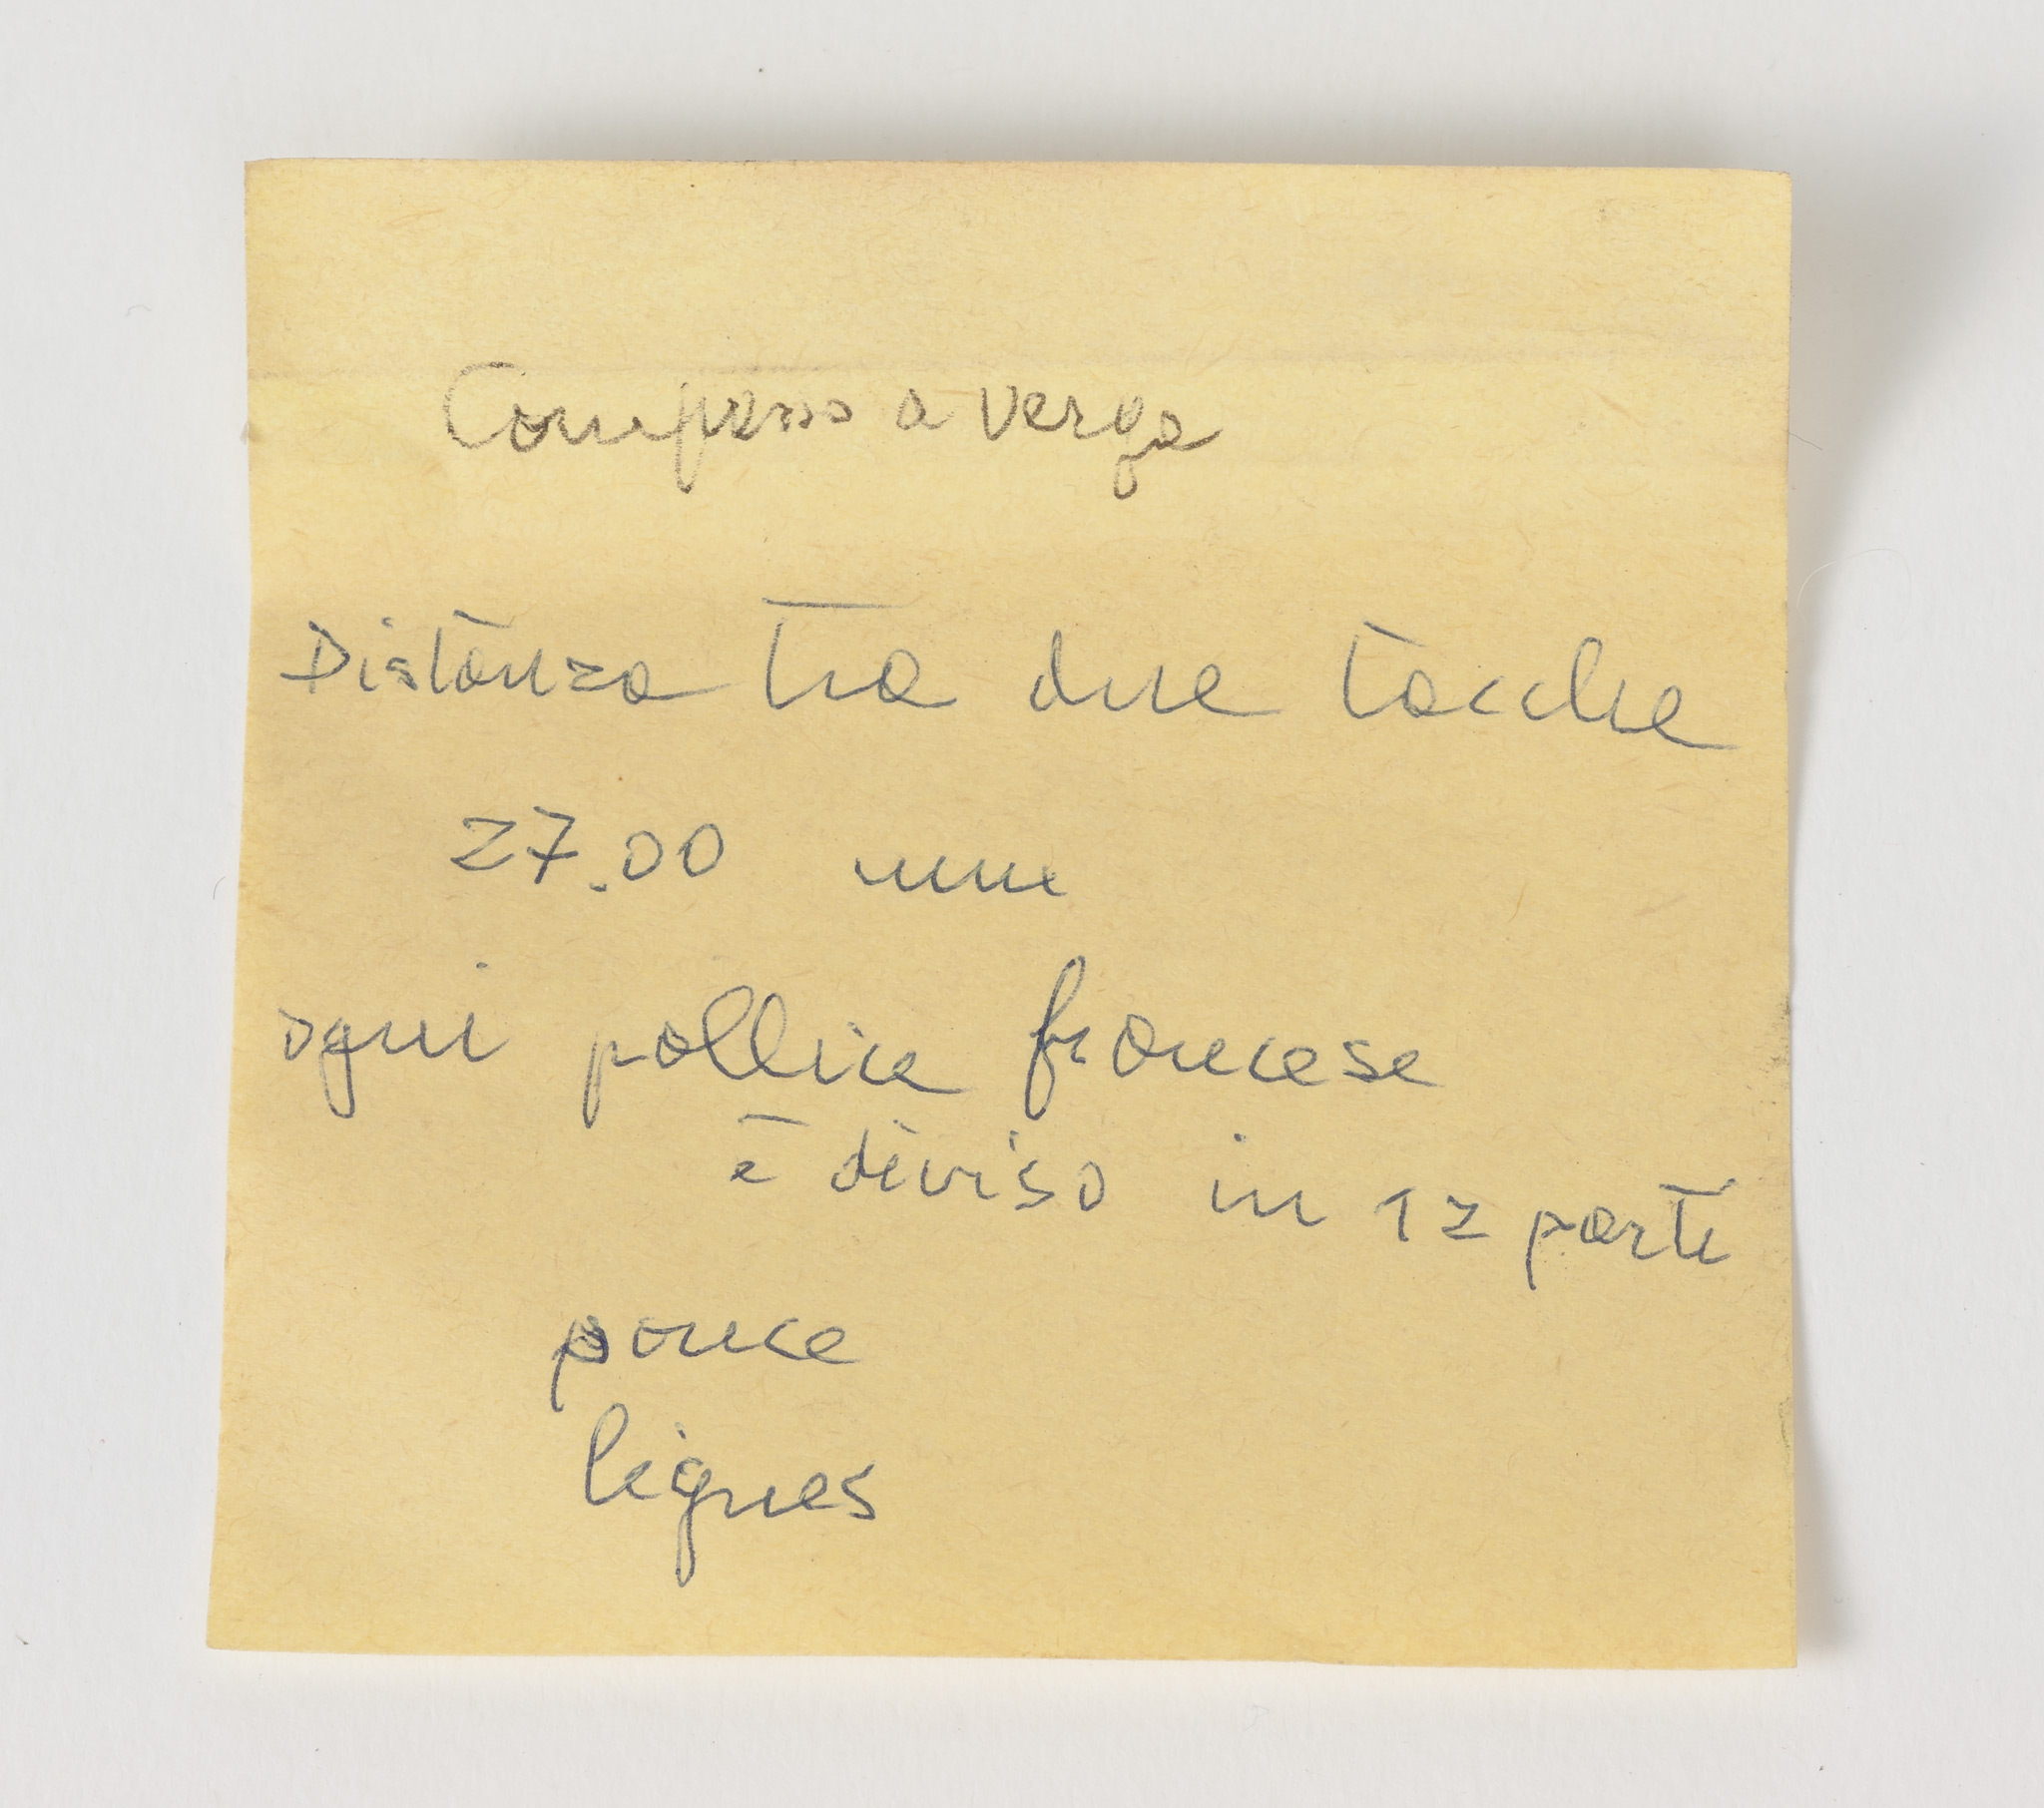 Compasso a verga
Distanza tra due tacche
27.00 mm
ogni pollice francese
è diviso in 12 parti
pouce
lignes